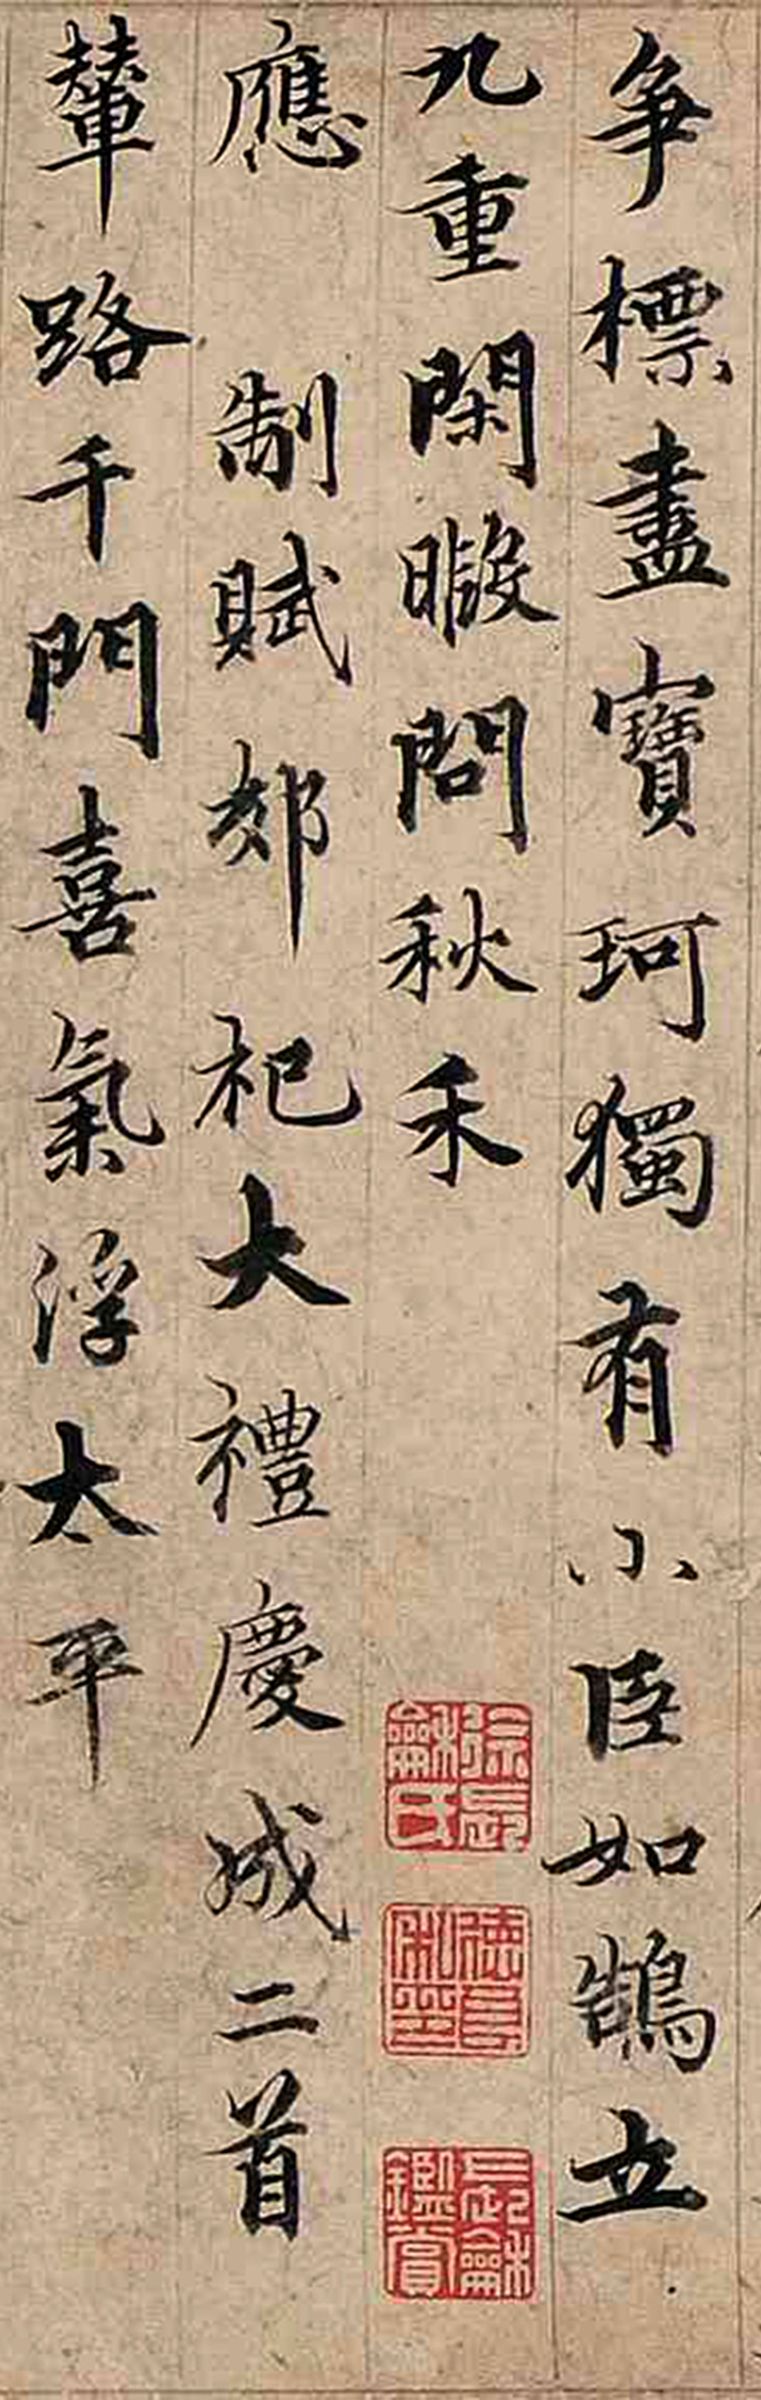 争標盡寶珂獨有小臣如鵠立
九重閑暇問秋禾
應制賦郊祀大禮慶成二首
輦路千門喜氣浮太平